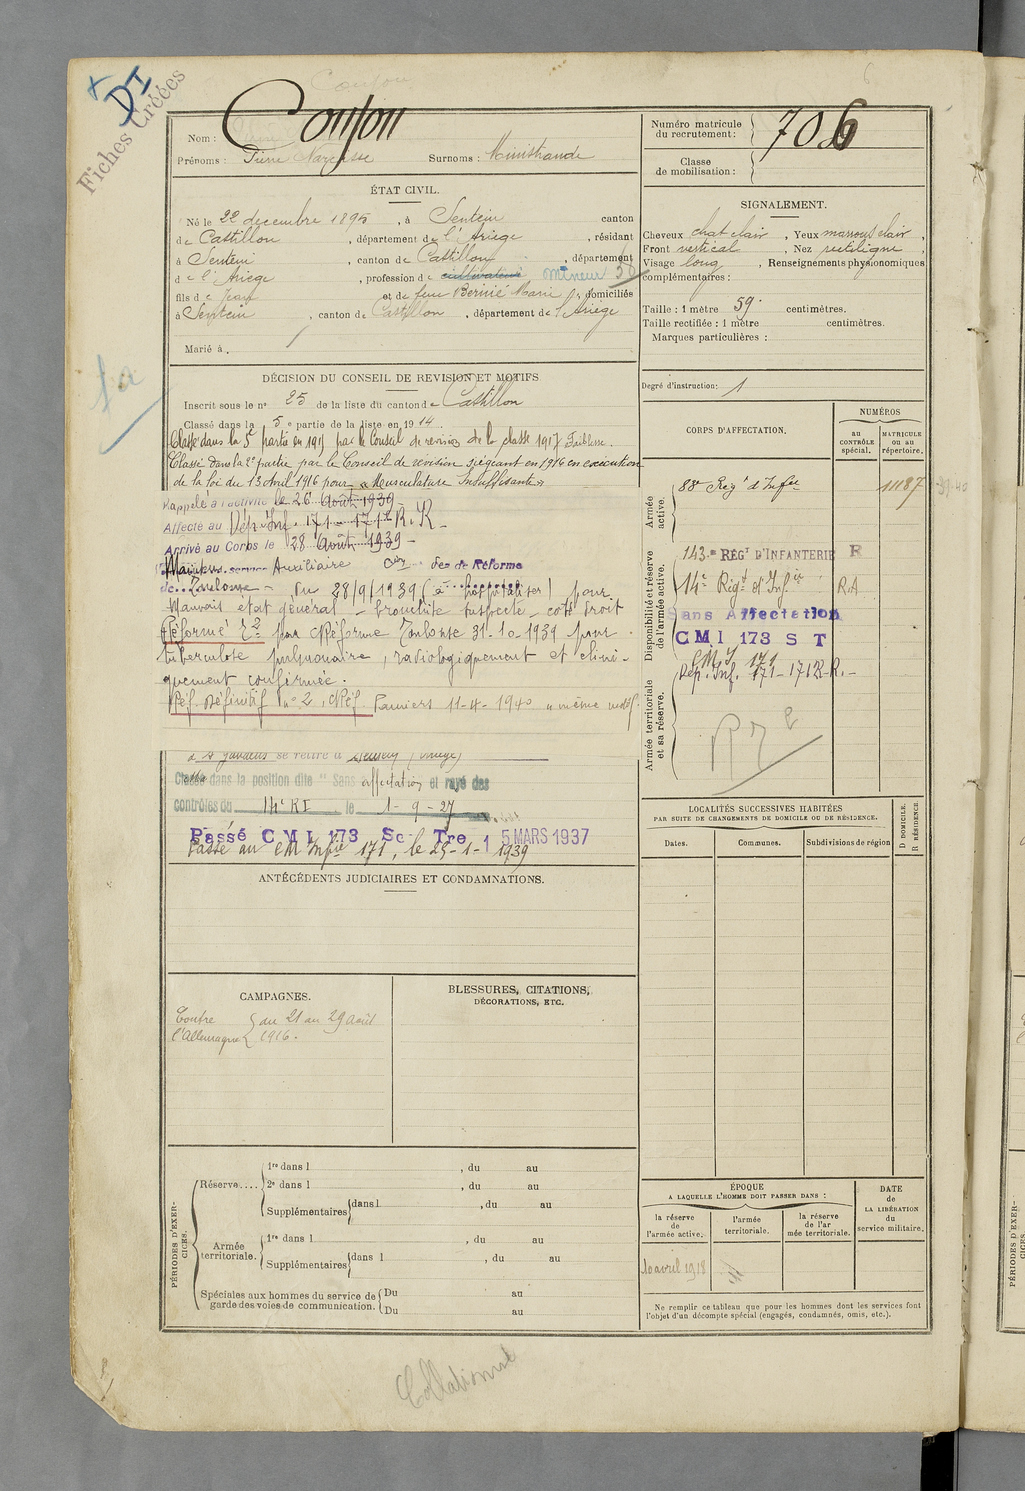 Fiches Créées
DI
Nom : Coujou
Prénoms : Pierre Narcisse Surnoms : Ministrande
Numéro matricule du recrutement : 706
Classe de mobilisation :
ÉTAT CIVIL.
Né le 22 décembre 1895, à Sentein canton
de Castillon, département de l'Ariège, résidant
à Sentein, canton de Castillon, département
d e l'Ariège, profession de cultivateur mineur
fils de Jean et de feue Bernié Marie, domiciliés
à Sentein, canton de Castillon, département de l'Ariège
Marié à
SIGNALEMENT.
Cheveux chat clair, Yeux marrons clair,
Front vertical, Nez rectiligne
Visage long, Renseignements physionomiques
complémentaires :
Taille : 1 mètre 59 centimètres.
Taille rectifiée : 1 mètre centimètres.
Marques particulières :
Degré d'instruction : 1
DÉCISION DU CONSEIL DE REVISION ET MOTIFS
Inscrit sous le n° 25 de la liste du canton de Castillon
Classé dans la 5e partie de la liste en 1914.
Classé dans la 5 partie en 1915 par le Conseil de revision de la classe 1917 Faiblesse.
Classé dans la 2e partie par le Conseil de révision siégeant en 1916 en exécution
de la loi du 13 avril 1916 pour "Musculature Insuffisante"
Rappelé à l'activité le 26 Août 1939
Affecté au Dép. Inf. 171 - 171e R.R.
Arrivé au Corps le 28 Août 1939
Maintenu service Auxiliaire Con de Réforme
de Toulouse - du 28/9/1939 (à hospitaliser) pour
Mauvais état général - bronchite suspecte coté droit
Réformé T2 par C Réforme Toulouse 31-10 1939 pour
tuberculose pulmonaire, radiologiquement et clini-
quement confirmée.
Réf. Définitif n° 2, C Réf. Pamiers 11-4-1940 "même motif"
à St Gaudens se retire à Sentein (Ariège)
Classé dans la position dite "Sans affectation et rayé des
contrôles du 14e RI le 1-9-27
Passé CMI 173 Sc Tre 15 MARS 1937
Passé au CM Infie 171, le 25-1-1939
CORPS D'AFFECTATION.
NUMÉROS
AU CONTRÔLE spécial.
MATRICULE OU AU répertoire.
Armée active.
88e Regt d'Infie 11187
Disponibilité et réserve de l'armée active.
143e RÉGt D'INFANTERIE R
14e Régt d'Infie RA
Sans Affectation
CMI 173 S T
C M I 171
Dép. Inf. 171-171e R.R.
Armée territoriale et sa réserve.
LOCALITÉS SUCCESSIVES HABITÉES
PAR SUITE DE CHANGEMENTS DE DOMICILE OU DE RÉSIDENCE.
Dates. Communes. Subdivisions de région
D DOMICILE. R RÉSIDENCE.
ANTÉCÉDENTS JUDICIAIRES ET CONDAMNATIONS.
CAMPAGNES.
Contre l'Allemagne { du 21 au 29 août 1916.
BLESSURES, CITATIONS,
DÉCORATIONS, ETC.
PÉRIODES D'EXERCICES.
Réserve.... 1re dans l , du au
2e dans l , du au
Supplémentaires dans l , du au
Armée territoriale. 1re dans l , du au
Supplémentaires dans l , du au
Spéciales aux hommes du service de garde des voies de communication. Du au
Du au
ÉPOQUE
A LAQUELLE L'HOMME DOIT PASSER DANS :
la réserve de l'armée active.
l'armée territoriale.
la réserve de l'armée territoriale.
DATE de LA LIBÉRATION du service militaire.
10 avril 1918
Ne remplir ce tableau que pour les hommes dont les services font
l'objet d'un décompte spécial (engagés, condamnés, omis, etc.).
Collationné